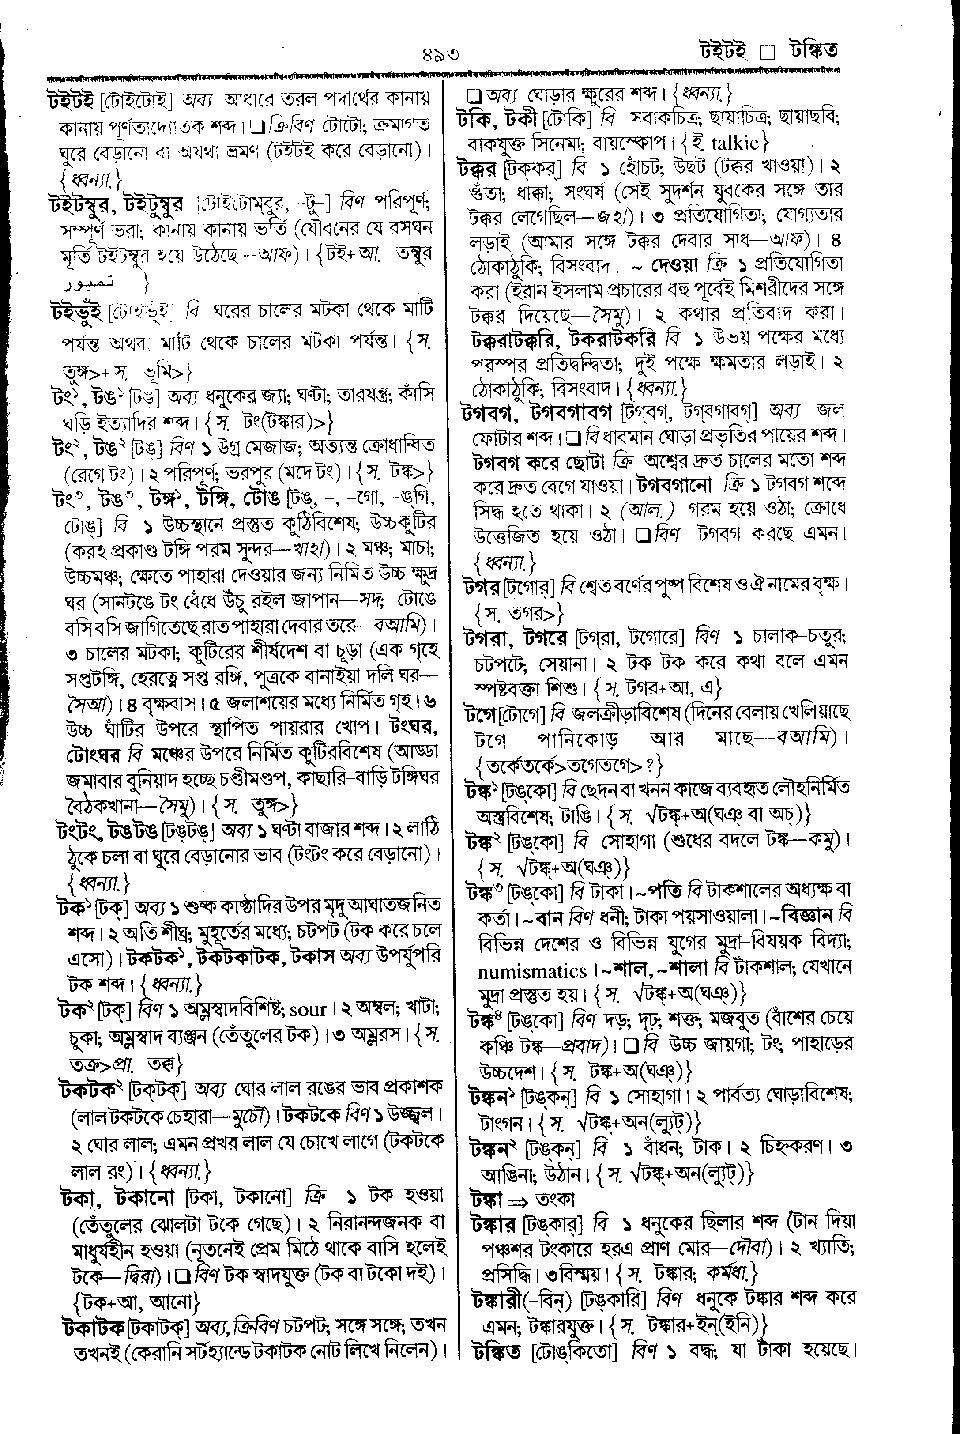 ৪৯৩
টইটই □ টঙ্কিত
টইটই [টোইটোই] অব্য আধারে তরল পদার্থের কানায়
কানায় পূর্ণতাদ্যোতক শব্দ। □ ক্রিবিণ টোটো; ক্রমাগত
ঘুরে বেড়ানো বা অযথা ভ্রমণ (টইটই করে বেড়ানো)।
{ধ্বন্যা.}
টইটম্বুর, টইটুম্বুর [টোইটোম্‌বুর, -টু-] বিণ পরিপূর্ণ;
সম্পূর্ণ ভরা; কানায় কানায় ভর্তি (যৌবনের যে রসঘন
মূর্তি টইটম্বুর হয়ে উঠেছে—আফ)। {টই+ আ. তম্বুর
تمبور }
টইভুঁই [টোইভুঁই] বি ঘরের চালের মটকা থেকে মাটি
পর্যন্ত অথবা মাটি থেকে চালের মটকা পর্যন্ত। {স.
তুঙ্গ>+ স. ভূমি>}
টং১, টঙ১ [টঙ] অব্য ধনুকের জ্যা; ঘণ্টা; তারযন্ত্র; কাঁসি
ঘড়ি ইত্যাদির শব্দ। {স. টং(টঙ্কার)>}
টং২, টঙ২ [টঙ] বিণ ১ উগ্র মেজাজ; অত্যন্ত ক্রোধান্বিত
(রেগে টং)। ২ পরিপূর্ণ; ভরপুর (মদে টং)। {স. টঙ্ক>}
টং৩, টঙ৩, টঙ্গ১, টঙ্গি, টোঙ [টঙ, -, -গো, -ঙ্‌গি,
টোঙ্] বি ১ উচ্চস্থানে প্রস্তুত কুঠিবিশেষ; উচ্চকুটির
(করহ প্রকাণ্ড টঙ্গি পরম সুন্দর—খাহা)। ২ মঞ্চ; মাচা;
উচ্চমঞ্চ; ক্ষেতে পাহারা দেওয়ার জন্য নির্মিত উচ্চ ক্ষুদ্র
ঘর (সানটঙে টং বেঁধে উঁচু রইল জাপান—সদ; টোঙে
বসি বসি জাগিতেছে রাত পাহারা দেবার তরে—বআমি)।
৩ চালের মটকা; কুটিরের শীর্ষদেশ বা চূড়া (এক গৃহে
সপ্তটঙ্গি, হেরত্নে সপ্ত রঙ্গি, পুত্রকে বানাইয়া দলি ঘর—
সৈআ)। ৪ বৃক্ষবাস। ৫ জলাশয়ের মধ্যে নির্মিত গৃহ। ৬
উচ্চ ঘাঁটির উপরে স্থাপিত পায়রার খোপ। টংঘর,
টোংঘর বি মঞ্চের উপরে নির্মিত কুটিরবিশেষ (আড্ডা
জমাবার বুনিয়াদ হচ্ছে চণ্ডীমণ্ডপ, কাছারি-বাড়ি টঙ্গিঘর
বৈঠকখানা—সৈমু)। {স. তুঙ্গ>}
টংটং, টঙটঙ [টঙ্‌টঙ্] অব্য ১ ঘণ্টা বাজার শব্দ। ২ লাঠি
ঠুকে চলা বা ঘুরে বেড়ানোর ভাব (টংটং করে বেড়ানো)।
{ধ্বন্যা.}
টক১ [টক্] অব্য ১ শুষ্ক কাষ্ঠাদির উপর মৃদু আঘাতজনিত
শব্দ। ২ অতি শীঘ্র; মুহূর্তের মধ্যে; চটপট (টক করে চলে
এসো)। টকটক১, টকটকাটক, টকাস অব্য উপর্যুপরি
টক শব্দ। {ধ্বন্যা.}
টক২ [টক্] বিণ ১ অম্লস্বাদবিশিষ্ট; sour। ২ অম্বল; খাটা;
চুকা; অম্লস্বাদ ব্যঞ্জন (তেঁতুলের টক)। ৩ অম্লরস। {স.
তক্র>প্রা. তক্ক}
টকটক২ [টক্‌টক্] অব্য ঘোর লাল রঙের ভাব প্রকাশক
(লাল টকটকে চেহারা—মুচৌ)। টকটকে বিণ ১ উজ্জ্বল।
২ ঘোর লাল; এমন প্রখর লাল যে চোখে লাগে (টকটকে
লাল রং)। {ধ্বন্যা.}
টকা, টকানো [টকা, টকানো] ক্রি ১ টক হওয়া
(তেঁতুলের ঝোলটা টকে গেছে)। ২ নিরানন্দজনক বা
মাধুর্যহীন হওয়া (নূতনেই প্রেম মিঠে থাকে বাসি হলেই
টকে—দ্বিরা)। □ বিণ টক স্বাদযুক্ত (টক বা টকো দই)।
{টক+আ, আনো}
টকাটক [টকাটক্] অব্য, ক্রিবিণ চটপট; সঙ্গে সঙ্গে; তখন
তখনই (কেরানি সর্টহ্যান্ডে টকাটক নোট লিখে নিলেন)।
□ অব্য ঘোড়ার ক্ষুরের শব্দ। {ধ্বন্যা.}
টকি, টকী [টোকি] বি সবাকচিত্র; ছায়াচিত্র; ছায়াছবি;
বাকযুক্ত সিনেমা; বায়স্কোপ। {ই talkie}
টক্কর [টক্‌কর্] বি ১ হোঁচট; উছট (টক্কর খাওয়া)। ২
গুঁতা; ধাক্কা; সংঘর্ষ (সেই সুদর্শন যুবকের সঙ্গে তার
টক্কর লেগেছিল—জহা)। ৩ প্রতিযোগিতা; যোগ্যতার
লড়াই (আমার সঙ্গে টক্কর দেবার সাধ—আফ)। ৪
ঠোকাঠুকি; বিসংবাদ। ~ দেওয়া ক্রি ১ প্রতিযোগিতা
করা (ইরান ইসলাম প্রচারের বহু পূর্বেই মিশরীদের সঙ্গে
টক্কর দিয়েছে—সৈমু)। ২ কথার প্রতিবাদ করা।
টক্করাটক্করি, টকরাটকরি বি ১ উভয় পক্ষের মধ্যে
পরস্পর প্রতিদ্বন্দ্বিতা; দুই পক্ষে ক্ষমতার লড়াই। ২
ঠোকাঠুকি; বিসংবাদ। {ধ্বন্যা.}
টগবগ, টগবগাবগ [টগ্‌বগ্, টগ্‌বগাবগ্] অব্য জল
ফোটার শব্দ। □ বি ধাবমান ঘোড়া প্রভৃতির পায়ের শব্দ।
টগবগ করে ছোটা ক্রি অশ্বের দ্রুত চালের মতো শব্দ
করে দ্রুত বেগে যাওয়া। টগবগানো ক্রি ১ টগবগ শব্দে
সিদ্ধ হতে থাকা। ২ (আল.) গরম হয়ে ওঠা; ক্রোধে
উত্তেজিত হয়ে ওঠা। □ বিণ টগবগ করছে এমন।
{ধ্বন্যা.}
টগর [টগোর্] বি শ্বেত বর্ণের পুষ্প বিশেষ ও ঐ নামের বৃক্ষ।
{স. তগর>}
টগরা, টগরে [টগ্‌রা, টগোরে] বিণ ১ চালাক-চতুর;
চটপটে; সেয়ানা। ২ টক টক করে কথা বলে এমন
স্পষ্টবক্তা শিশু। {স. টগর+আ, এ}
টগে [টোগে] বি জলক্রীড়াবিশেষ (দিনের বেলায় খেলিয়াছে
টগে পানিকোড় আর মাছে—বআমি)।
{তর্কেতর্কে>তগেতগে>?}
টঙ্ক১ [টঙ্‌কো] বি ছেদন বা খনন কাজে ব্যবহৃত লৌহনির্মিত
অস্ত্রবিশেষ; টাঙি। {স. √টঙ্ক্+অ(ঘঞ্ বা অচ্)}
টঙ্ক২ [টঙ্‌কো] বি সোহাগা (শুধের বদলে টঙ্ক—কমু)।
{স. √টঙ্ক্+অ(ঘঞ্)}
টঙ্ক৩ [টঙ্‌কো] বি টাকা। ~পতি বি টাকশালের অধ্যক্ষ বা
কর্তা। ~বান বিণ ধনী; টাকা পয়সাওয়ালা। ~বিজ্ঞান বি
বিভিন্ন দেশের ও বিভিন্ন যুগের মুদ্রা-বিষয়ক বিদ্যা;
numismatics। ~শাল, ~শালা বি টাকশাল; যেখানে
মুদ্রা প্রস্তুত হয়। {স. √টঙ্ক্+অ(ঘঞ্)}
টঙ্ক৪ [টঙ্‌কো] বিণ দড়; দৃঢ়; শক্ত; মজবুত (বাঁশের চেয়ে
কঞ্চি টঙ্ক—প্রবাদ)। □ বি উচ্চ জায়গা; টং; পাহাড়ের
উচ্চদেশ। {স. টঙ্ক্+অ(ঘঞ্)}
টঙ্কন১ [টঙ্‌কন্] বি ১ সোহাগা। ২ পার্বত্য ঘোড়াবিশেষ;
টাংগন। {স. √টঙ্ক্+অন(ল্যুট্)}
টঙ্কন২ [টঙ্‌কন্] বি ১ বাঁধন; টাক। ২ চিহ্নকরণ। ৩
আঙিনা; উঠান। {স. √টঙ্ক্+অন(ল্যুট্)}
টঙ্কা ⇒ তংকা
টঙ্কার [টঙ্‌কার্] বি ১ ধনুকের ছিলার শব্দ (টান দিয়া
পঞ্চশর টংকারে হরএ প্রাণ মোর—দৌবা)। ২ খ্যাতি;
প্রসিদ্ধি। ৩ বিস্ময়। {স. টঙ্কার; কর্মধা.}
টঙ্কারী(-রিন্) [টঙ্‌কারি] বিণ ধনুকে টঙ্কার শব্দ করে
এমন; টঙ্কারযুক্ত। {স. টঙ্কার+ইন্(ইনি)}
টঙ্কিত [টোঙ্‌কিতো] বিণ ১ বদ্ধ; যা টাঁকা হয়েছে।